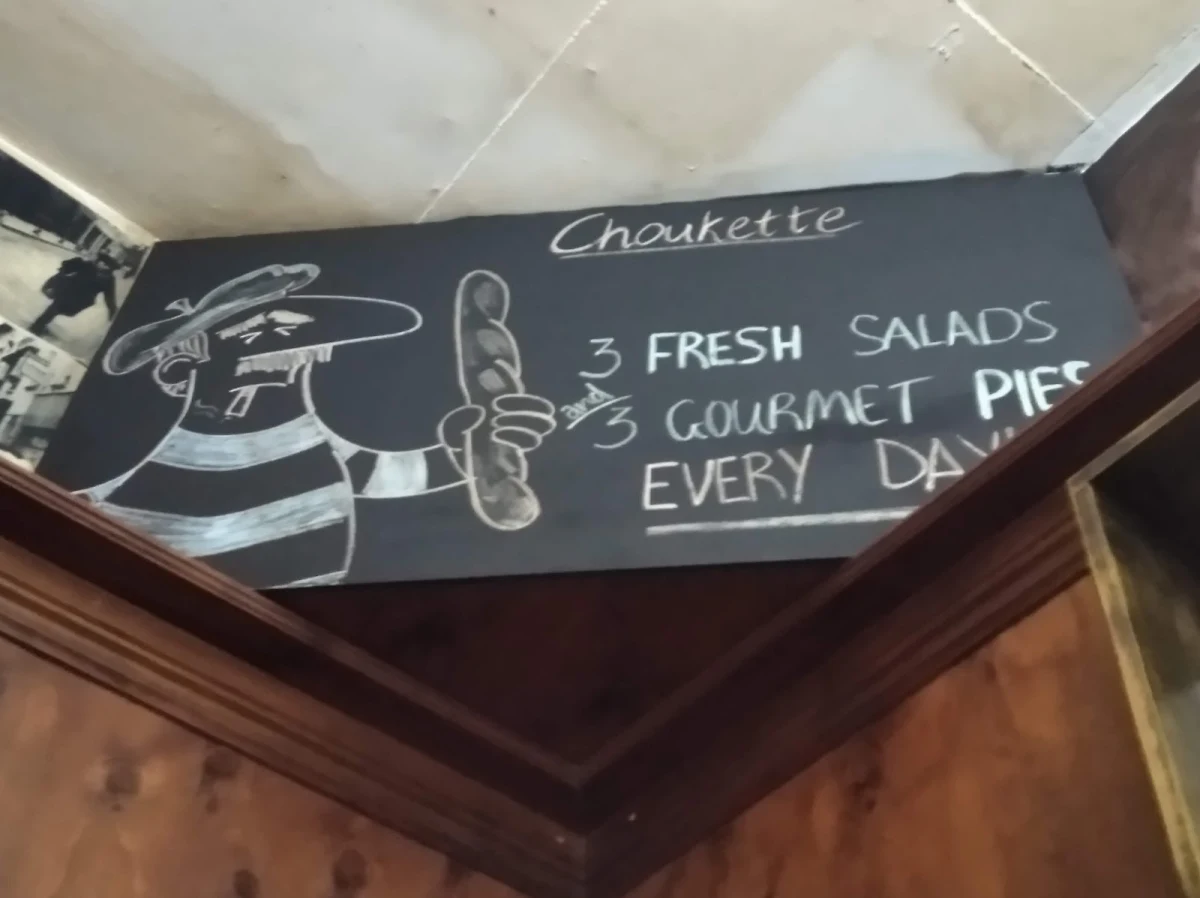 Choukette
3 FRESH SALADS
and
3 GOURMET PIES
EVERY DAY!